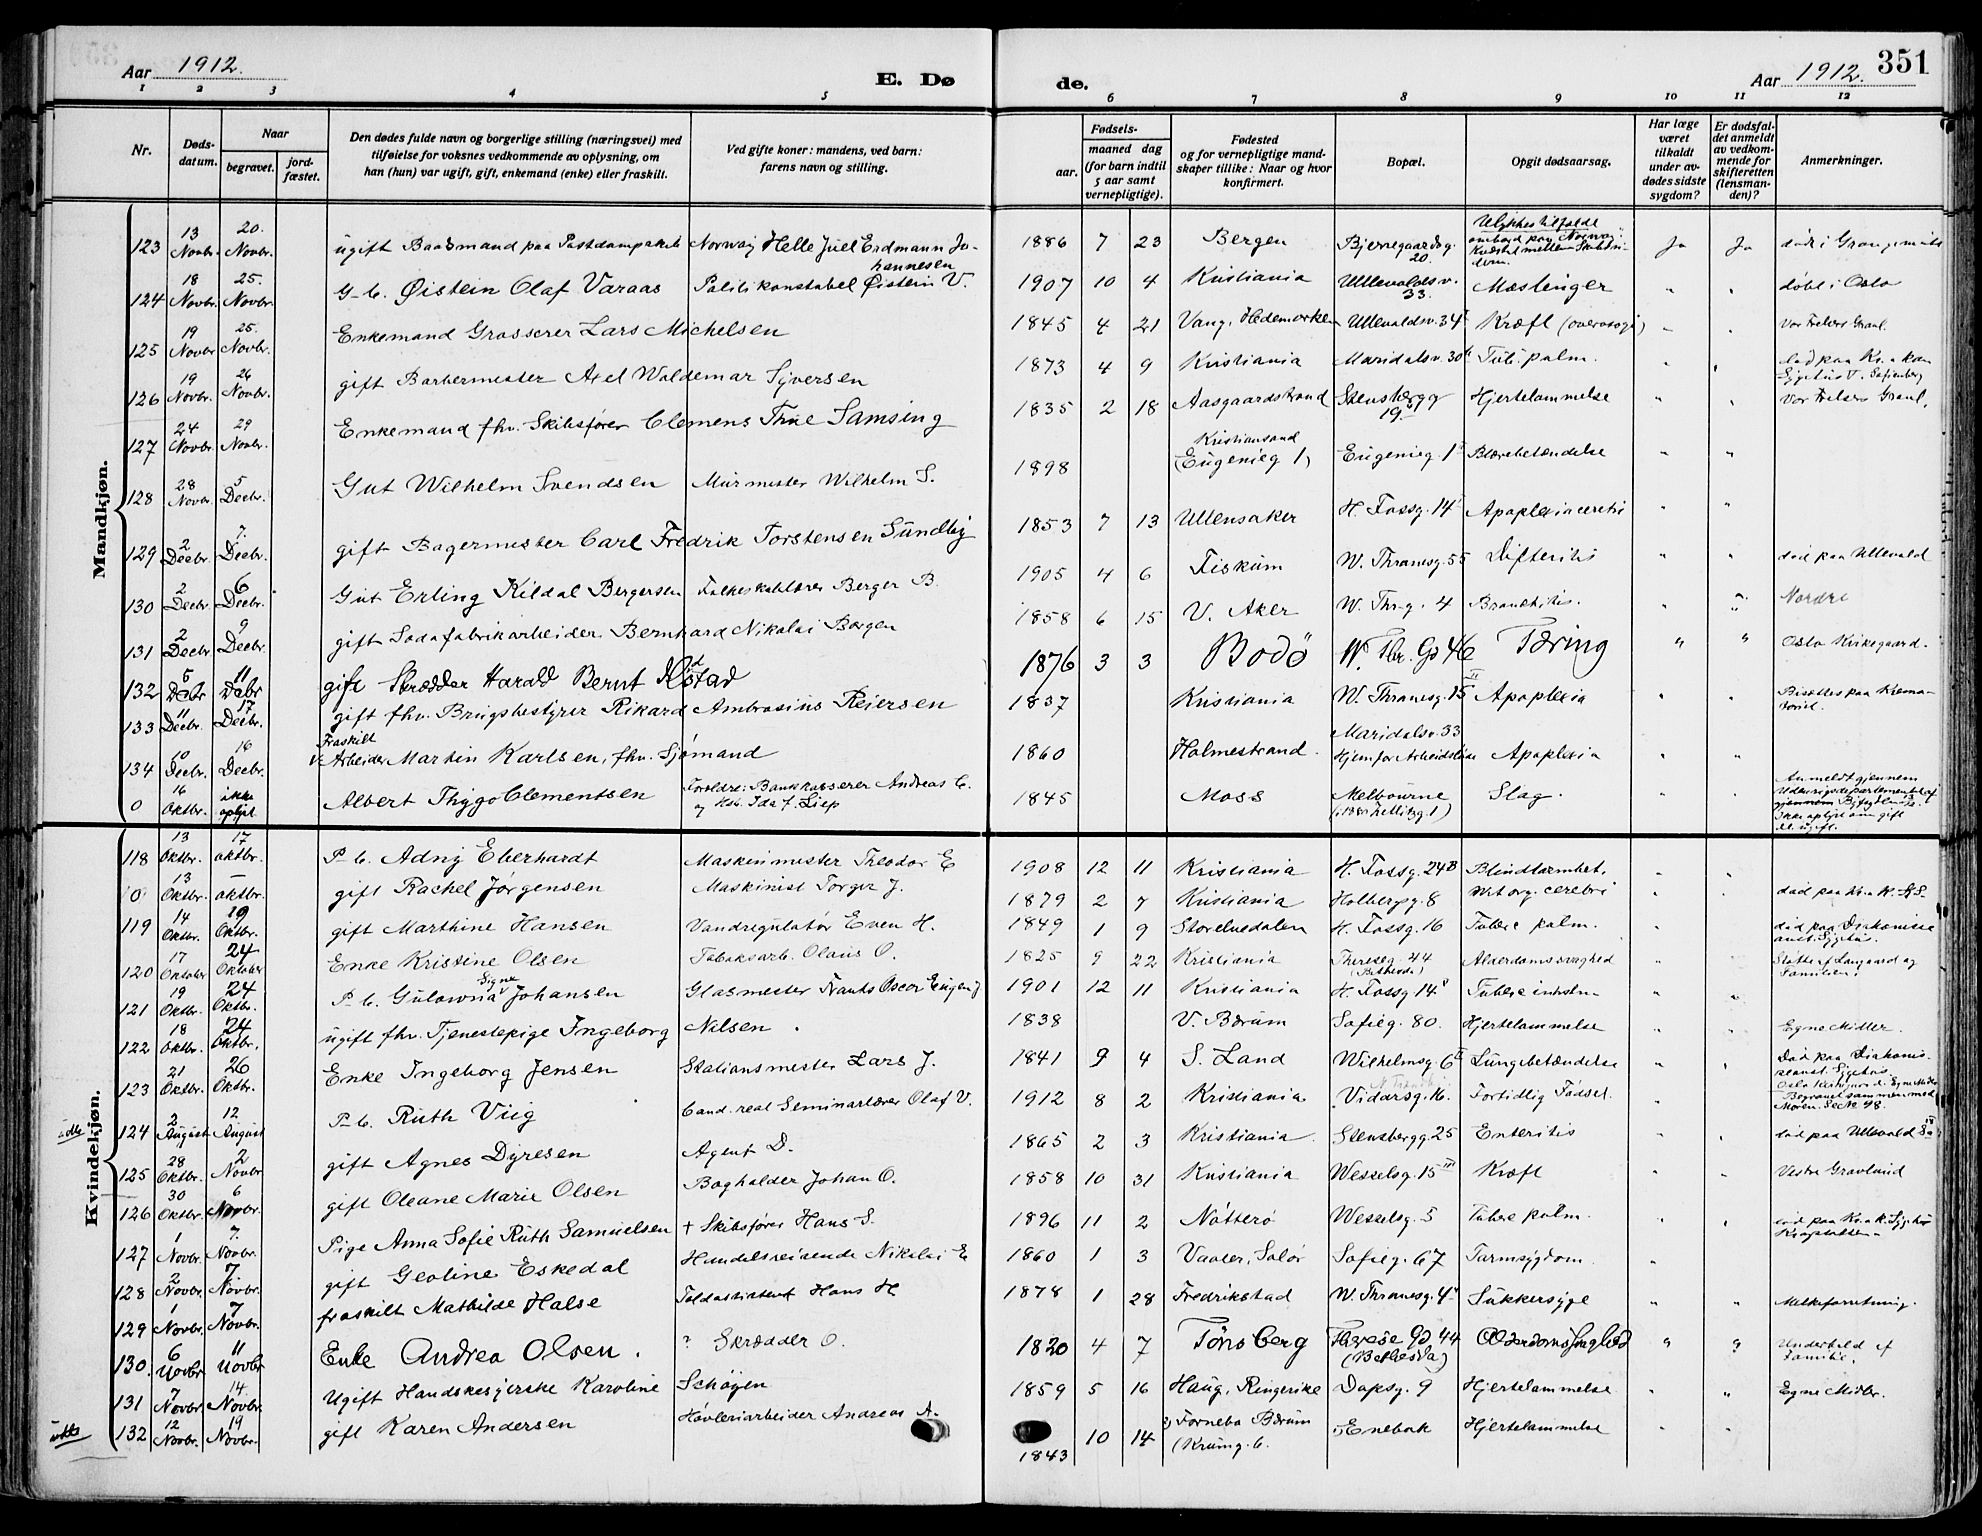 351
Aar 1912.
E. Dø
de.
Aar 1912.
1 2 3 4 5 6 7 8 9 10 11 12
Nr.
Dødsdatum.
Naar
begravet.
jordfæstet.
Den dødes fulde navn og borgerlige stilling (næringsvei) med
tilføielse for voksnes vedkommende av oplysning, om
han (hun) var ugift, gift, enkemand (enke) eller fraskilt.
Ved gifte koner: mandens, ved barn:
farens navn og stilling.
Fødsels-
aar.
maaned dag
(for barn indtil
5 aar samt
vernepligtige).
Fødested
og for vernepligtige mand-
skaper tillike: Naar og hvor
konfirmert.
Bopæl.
Opgit dødsaarsag.
Har læge
været
tilkaldt
under av-
dødes sidste
sygdom?
Er dødsfal-
det anmeldt
av vedkom-
mende for
skifteretten
(lensman-
den)?
Anmerkninger.
Mandkjøn.
123 13 Novbr. 20. Novbr. ugift Baadsmand paa Norway Helle Juel Erdmann Johannesen 1886 7 23 Bergen 20. Ja Ja
124 18 Novbr. 25. Novbr. G-b. Øistein Olaf Varaas Politikonstabel Øistein V. 1907 10 4 Kristiania Ullevaldsv. 33. Mæslinger " " døbt i Oslo
125 19 Novbr. 25. Novbr. Enkemand Grosserer Lars Michelsen 1845 4 21 Vang, Hedemarken Ullevaldsv. 34 Kræft Vor Frelsers Gravl.
126 19 Novbr. 26 Novbr. gift Barbermester Axel Waldemar Syversen 1873 4 9 Kristiania Maridalsv. 30 Tub. pulm.
127 24 Novbr. 29 Novbr. Enkemand fhv. Skibsfører Clemens Thue Samsing 1835 2 18 Aasgaardstrand Stensbergg 19 Hjertelammelse " " Vor Frelsers Gravl.
128 28 Novbr. 5 Decbr. Gut Wilhelm Svendsen Murmester Wilhelm S. 1898 Kristiansand (Eugenieg 1) Eugenieg. 1 Blærebetændelse " "
129 2 Decbr. 7. Decbr. gift Bagermester Carl Fredrik Torstensen Sundby 1853 7 13 Ullensaker H. Fossg. 14 Apoplexia cerebri " "
130 2 Decbr. 6 Decbr. Gut Erling Kildal Bergersen Folkeskolelærer Berger B. 1905 4 6 Fiskum W. Thranesg. 55 Difteritis " " død paa Ullevald
131 2 Decbr. 9 Decbr. gift Sodafabrikarbeider Bernhard Nikolai Borgen 1858 6 15 V. Aker W. Thr-g. 4 Bronchitis. " " Nordre
132 5 Debr 11 Debr gift Skrædder Harald Bernt 1876 3 3 Bodö W. Thr. Gd 46 Tæring " " Oslo Kirkegaard.
133 11 Decbr. 17 Decbr. gift fhv. Brugsbestyrer Rikard Ambrosius Reiersen 1837 Kristiania W. Thranesg. 15 II Apoplexia " " Bisættes paa Krematoriet.
134 10 Decbr. 16 Decbr. Fraskilt Arbeider Martin Karlsen, fhv. Sjømand 1860 Holmestrand. Maridalsv. 33 Hjem for Arbeidsløse Apoplexia " "
0 16 Oktbr. ikke oplyst Albert Thygo Clementsen Forældre: Bankkasserer Andreas C. og Hst. Ida f. Liep 1845 Moss Melbourne Slag. Anmeldt gjennem Utenrigsdepartementet Ikke oplyst om gift el. ugift.
Kvindekjøn.
118 13 Oktbr. 17 oktbr. P-b. Adny Eberhardt Maskinmester Theodor E 1908 12 11 Kristiania H. Fossg. 24B Blindtarmbet.
0 13 Oktbr. - oktbr. gift Rachel Jørgensen Maskinist Torger J. 1879 2 7 Kristiania Holbergsg. 8
119 14 Oktbr. 19 Oktbr. gift Marthine Hansen Vandregulatør Even H. 1849 1 9 Storelvedalen H. Fossg. 16 Tuberc pulm.
120 17 Oktober 24 Oktober Enke Kristine Olsen Tobaksarb. Olaus O. 1825 9 22 Kristiania Thereseg. 44 (Bethesda) Alderdomssvaghed
121 19 Oktbr. 24 Oktbr. P-b. Gulowna Signe Johansen Glasmester Frants Oscar Eugen J 1901 12 11 Kristiania H. Fossg 14
122 18 Oktbr. 24 Oktbr. ugift fhv. Tjenestepige Ingeborg Nilsen. 1838 V. Bærum Sofieg. 80. Hjertelammelse Egne Midler.
123 21 Oktbr. 26 Oktbr. Enke Ingeborg Jensen Stationsmester Lars J. 1841 9 4 S. Land Wilhelmsg. 6 Lungebetændelse
124 2 August 12 August P-b. Ruth Viig Cand. real Seminarlærer Olaf V. 1912 8 2 Kristiania Vidarsg. 16. Fortidlig Fødsel.
125 28 Oktbr. 2 Novbr. gift Agnes Dyresen Agent D. 1865 2 3 Kristiania Stensbergg. 25 Enteritis
126 30 Oktbr. 6 Novbr. gift Oleane Marie Olsen Bogholder Johan O. 1858 10 31 Kristiania Wesselsg. 15 III Kræft Vestre Gravlund
127 1 Novbr. 7. Novbr. Pige Anna Sofie Ruth Samuelsen + Skibsfører Hans S. 1896 11 2 Nötterö Wesselsg. 5 Tuberc pulm.
128 2 Novbr. 7 Növbr. gift Geoline Eskedal Handelsreisende Nikolai E 1860 1 3 Vaaler, Solör Sofieg. 67 Tarmsygdom.
129 1 Novbr. 7 Növbr. fraskilt Mathilde Halse Toldassistent Hans H 1878 1 28 Fredrikstad W. Thranesg. 4 Sukkersyge " " Melkeforretning.
130. 6 Novbr 11 Novbr Enke Andrea Olsen. ? Skrædder O. 1820 4 7 Tönsberg Therese Gd 44 (Bethesda) " " Underhold af Familie.
131 7 Novbr. 14. Novbr. Ugift Handskesyerske Karoline Schøyen 1859 5 16 Haug, Ringerike Dopsg. 9 Hjertelammelse " " Egne Midler.
132 12 Novbr. 19 Novbr. gift Karen Andersen Høvleriarbeider Andreas A. 1843 10 14 Fornebo Bærum (Krumg. 6. Enebak Hjertelammelse